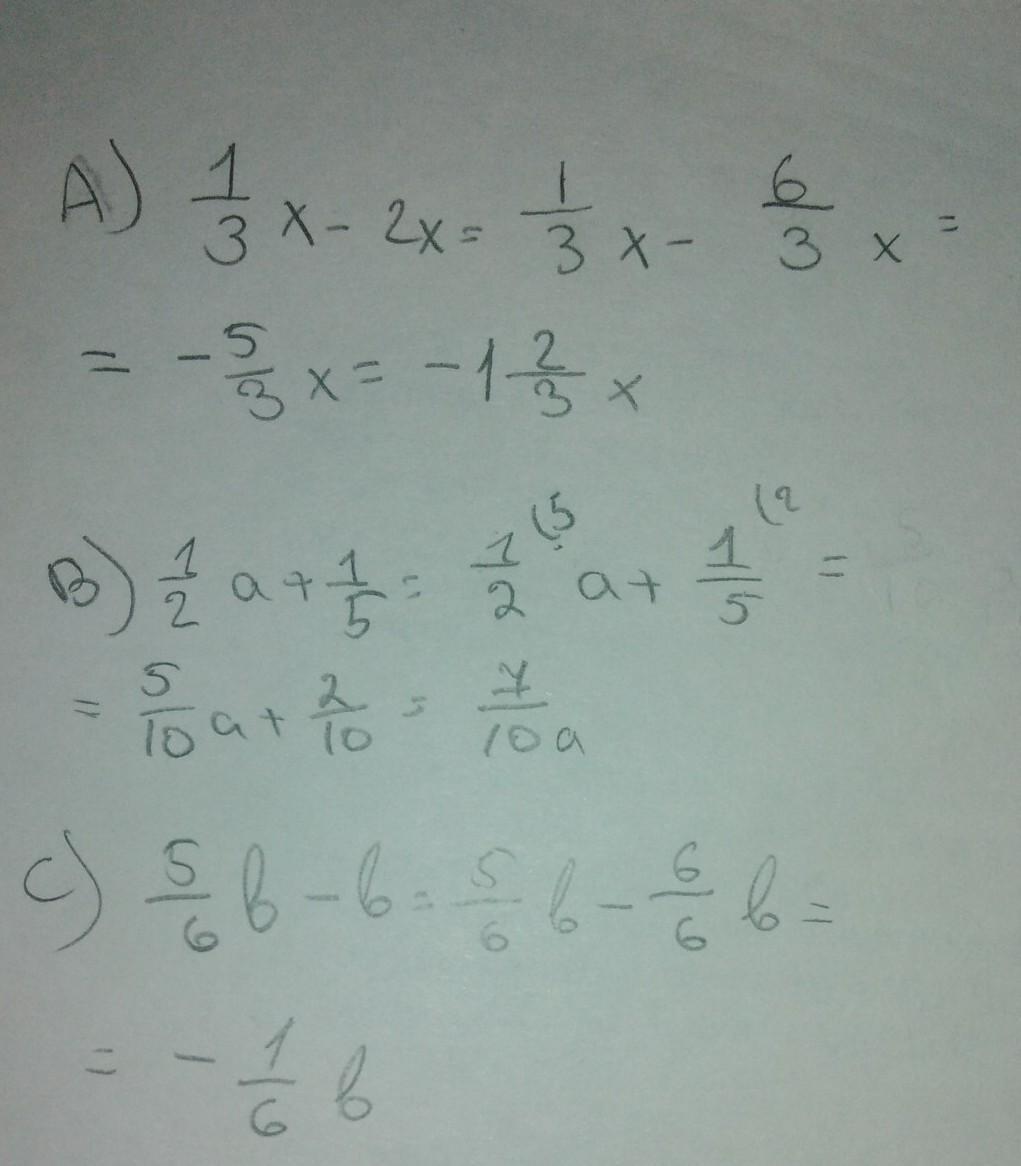 A) 1/3 x - 2x = 1/3 x - 6/3 x =
= - 5/3 x = - 1 2/3 x
B) 1/2 a + 1/5 = 1/2 (5 a + 1/5 (2 =
= 5/10 a + 2/10 = 7/10 a
C) 5/6 b - b = 5/6 b - 6/6 b =
= - 1/6 b